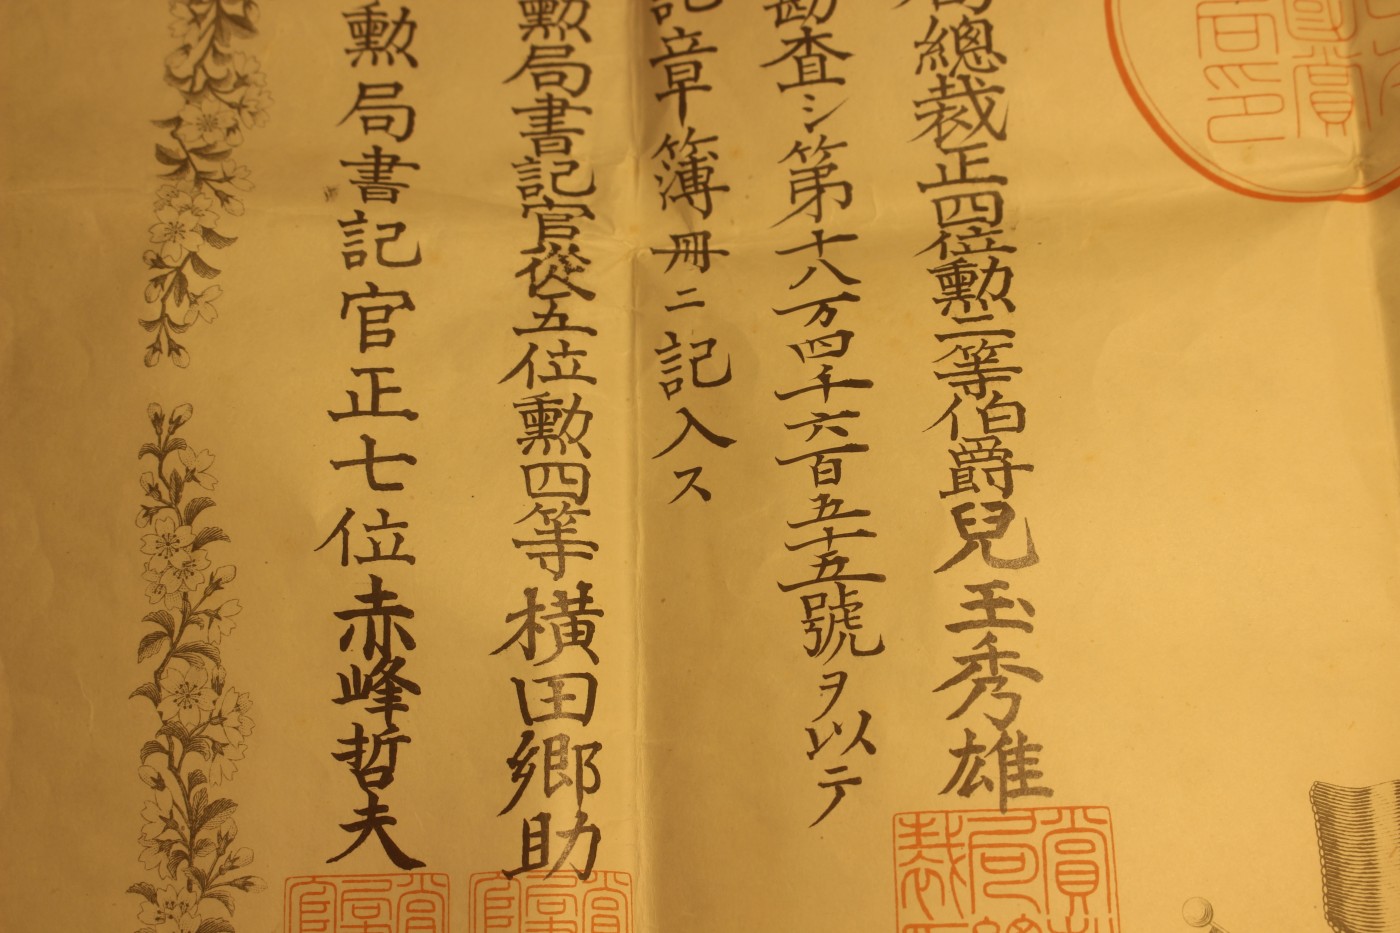 局總裁正四位勲二等伯爵兒玉秀雄
勘査シ第十八万四千六百五十五號ヲ以テ
記章簿冊ニ記入ス
勲局書記官從五位勲四等横田郷助
勲局書記官正七位赤峰哲夫